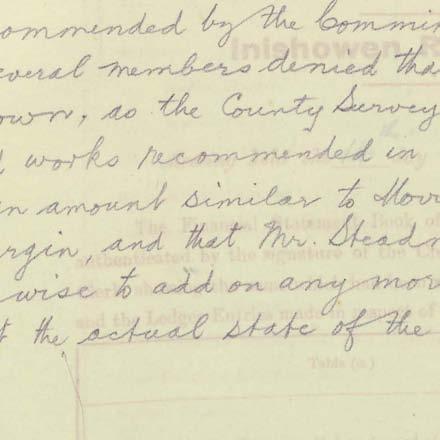 commended by the Commi
several members denied tha
own, as the County Survey
works recommended in
an amount similar to Mor
rgin, and that Mr. Stead
wise to add on any mor
the actual state of the
Inishowen R
The Financial Statement Book of
authenticated by the signature of the
and the Ledger Entries made in respect of
Table (a)